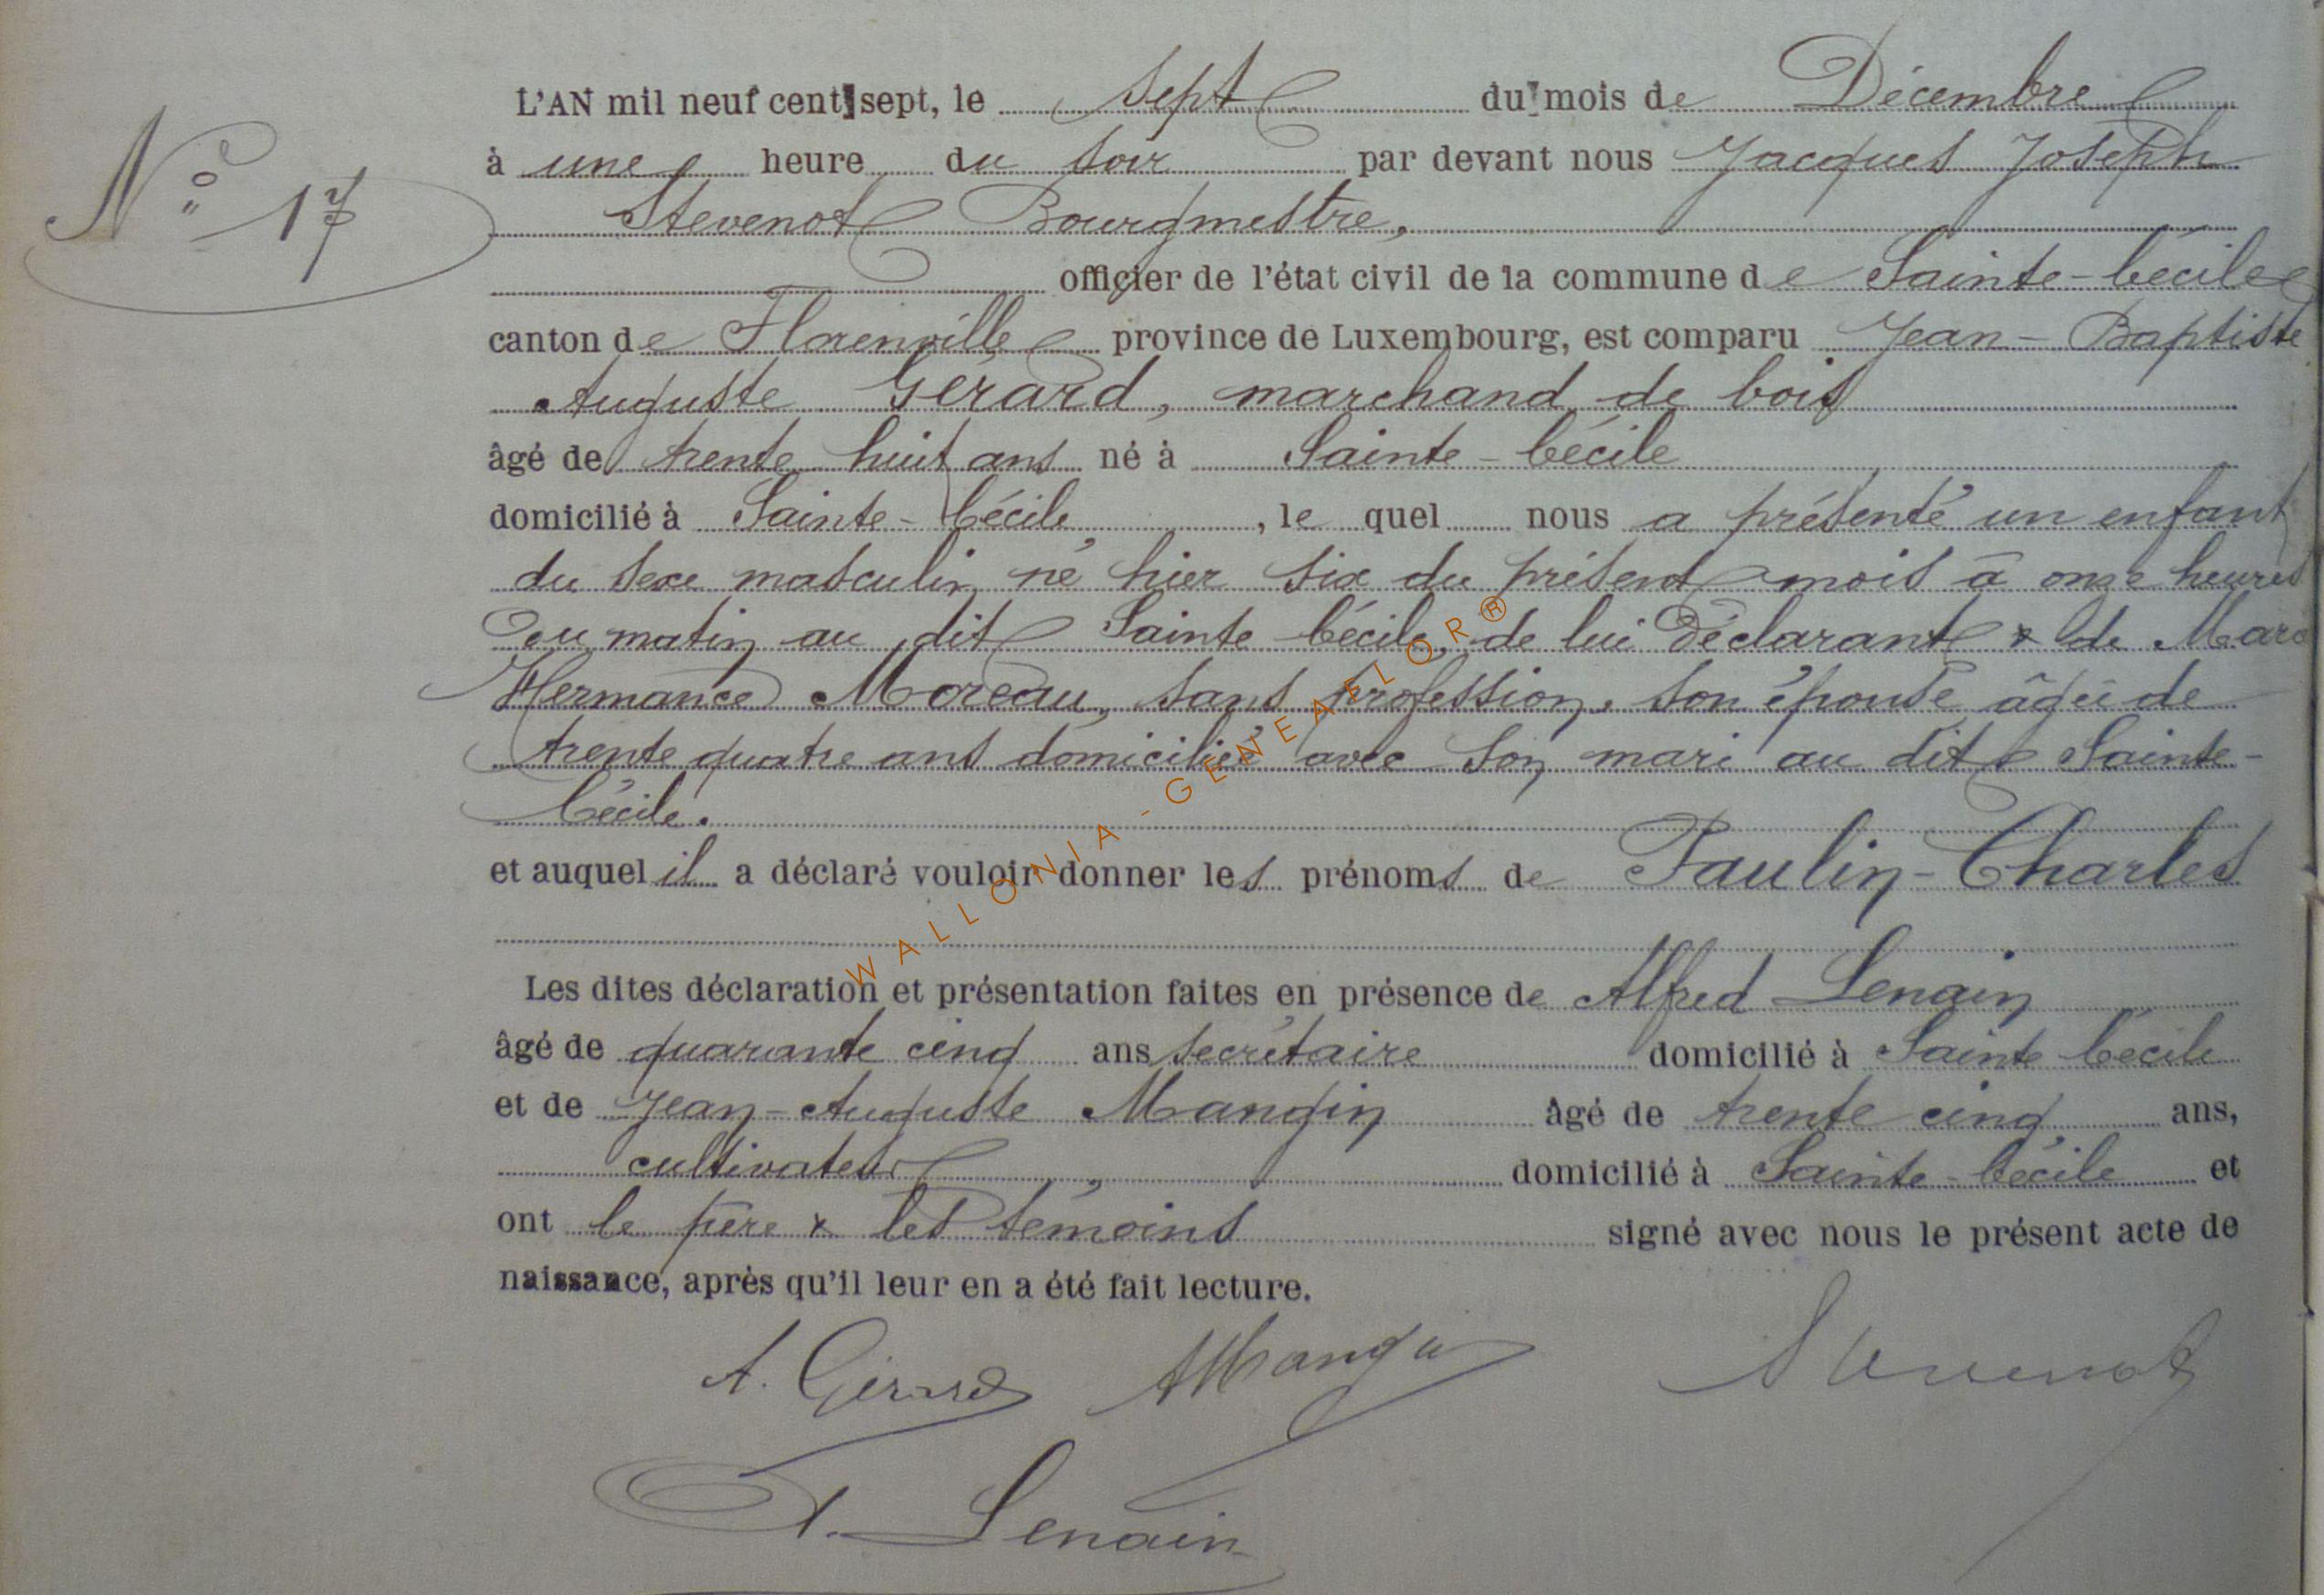 N° 17
L'AN mil neuf cent sept, le sept du mois de Décembre
à une heure du soir par devant nous Jacques Joseph
Stevenot Bourgmestre,
officier de l'état civil de la commune de Sainte-Cécile
canton de Florenville province de Luxembourg, est comparu Jean-Baptiste
Auguste Gérard, marchand de bois
âgé de trente huit ans né à Sainte-Cécile
domicilié à Sainte-Cécile, le quel nous a présenté un enfant
du sexe masculin né hier six du présent mois à onze heures
du matin au dit Sainte Cécile, de lui déclarant & de
Hermance Moreau, sans profession, son épouse âgée de
trente quatre ans domiciliée avec son mari au dit Sainte-
Cécile.
et auquel il a déclaré vouloir donner les prénoms de Paulin-Charles
Les dites déclaration et présentation faites en présence de Alfred Lenain
âgé de quarante cinq ans secrétaire domicilié à Sainte Cécile
et de Jean-Auguste Mangin âgé de trente cinq ans,
cultivateur, domicilié à Sainte-Cécile et
ont le père & les témoins signé avec nous le présent acte de
naissance, après qu'il leur en a été fait lecture.
A. Gérard AMangin Stevenot
A. Lenain
WALLONIA-GENEAFLOR®